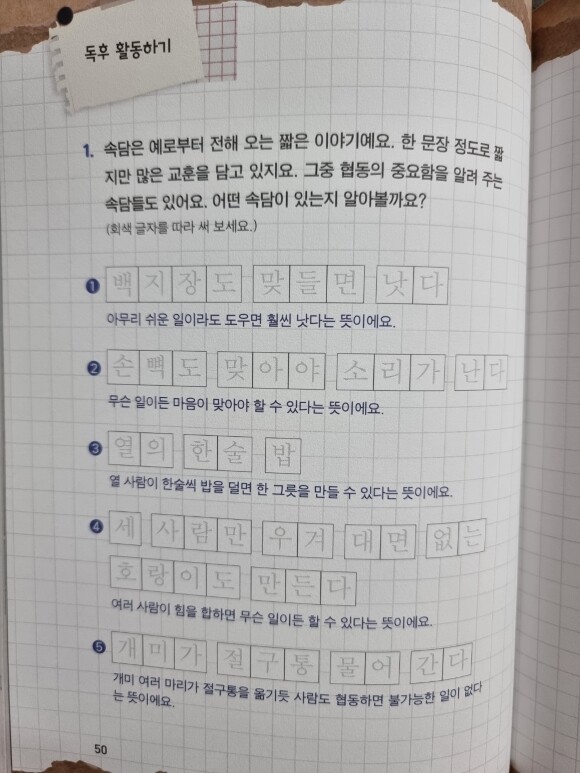 독후 활동하기
1. 속담은 예로부터 전해 오는 짧은 이야기예요. 한 문장 정도로 짧
지만 많은 교훈을 담고 있지요. 그중 협동의 중요함을 알려 주는
속담들도 있어요. 어떤 속담이 있는지 알아볼까요?
(회색 글자를 따라 써 보세요.)
❶ 백지장도 맞들면 낫다
아무리 쉬운 일이라도 도우면 훨씬 낫다는 뜻이에요.
❷ 손뼉도 맞아야 소리가 난다
무슨 일이든 마음이 맞아야 할 수 있다는 뜻이에요.
❸ 열의 한술 밥
열 사람이 한술씩 밥을 덜면 한 그릇을 만들 수 있다는 뜻이에요.
❹ 세 사람만 우겨 대면 없는
호랑이도 만든다
여러 사람이 힘을 합하면 무슨 일이든 할 수 있다는 뜻이에요.
❺ 개미가 절구통 물어 간다
개미 여러 마리가 절구통을 옮기듯 사람도 협동하면 불가능한 일이 없다
는 뜻이에요.
50